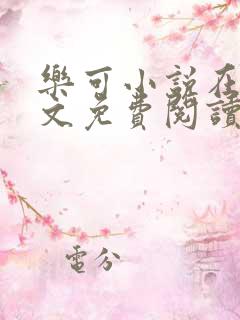 樂可小說在
文免費閱讀
電分